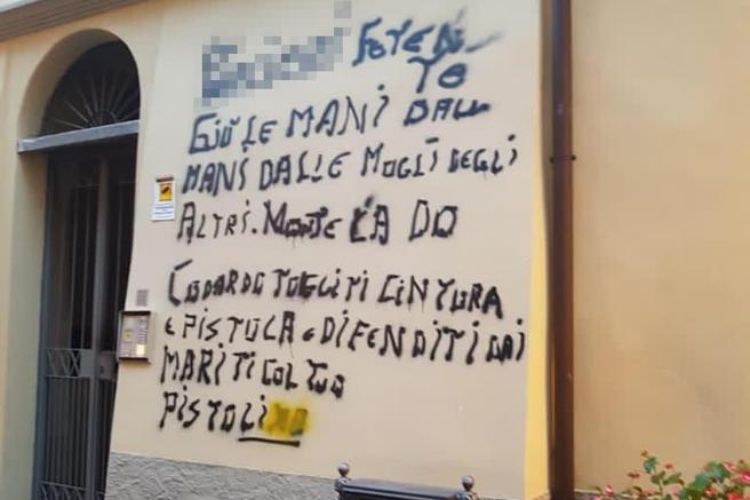 FETEN-
TE
GIÙ LE MANI DALL
MANI DALLE MOGLI DEGLI
ALTRI. LA DO
CODARDO TOGLITI CINTURA
E PISTOLA E DIFENDITI DAI
MARITI COL TUO
PISTOLINO